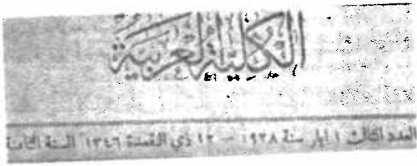 الكلية العربية
العدد الثالث ١ ايار سنة ١٩٢٨ — ١٢ ذي القعدة ١٣٤٦ السنة الثامنة